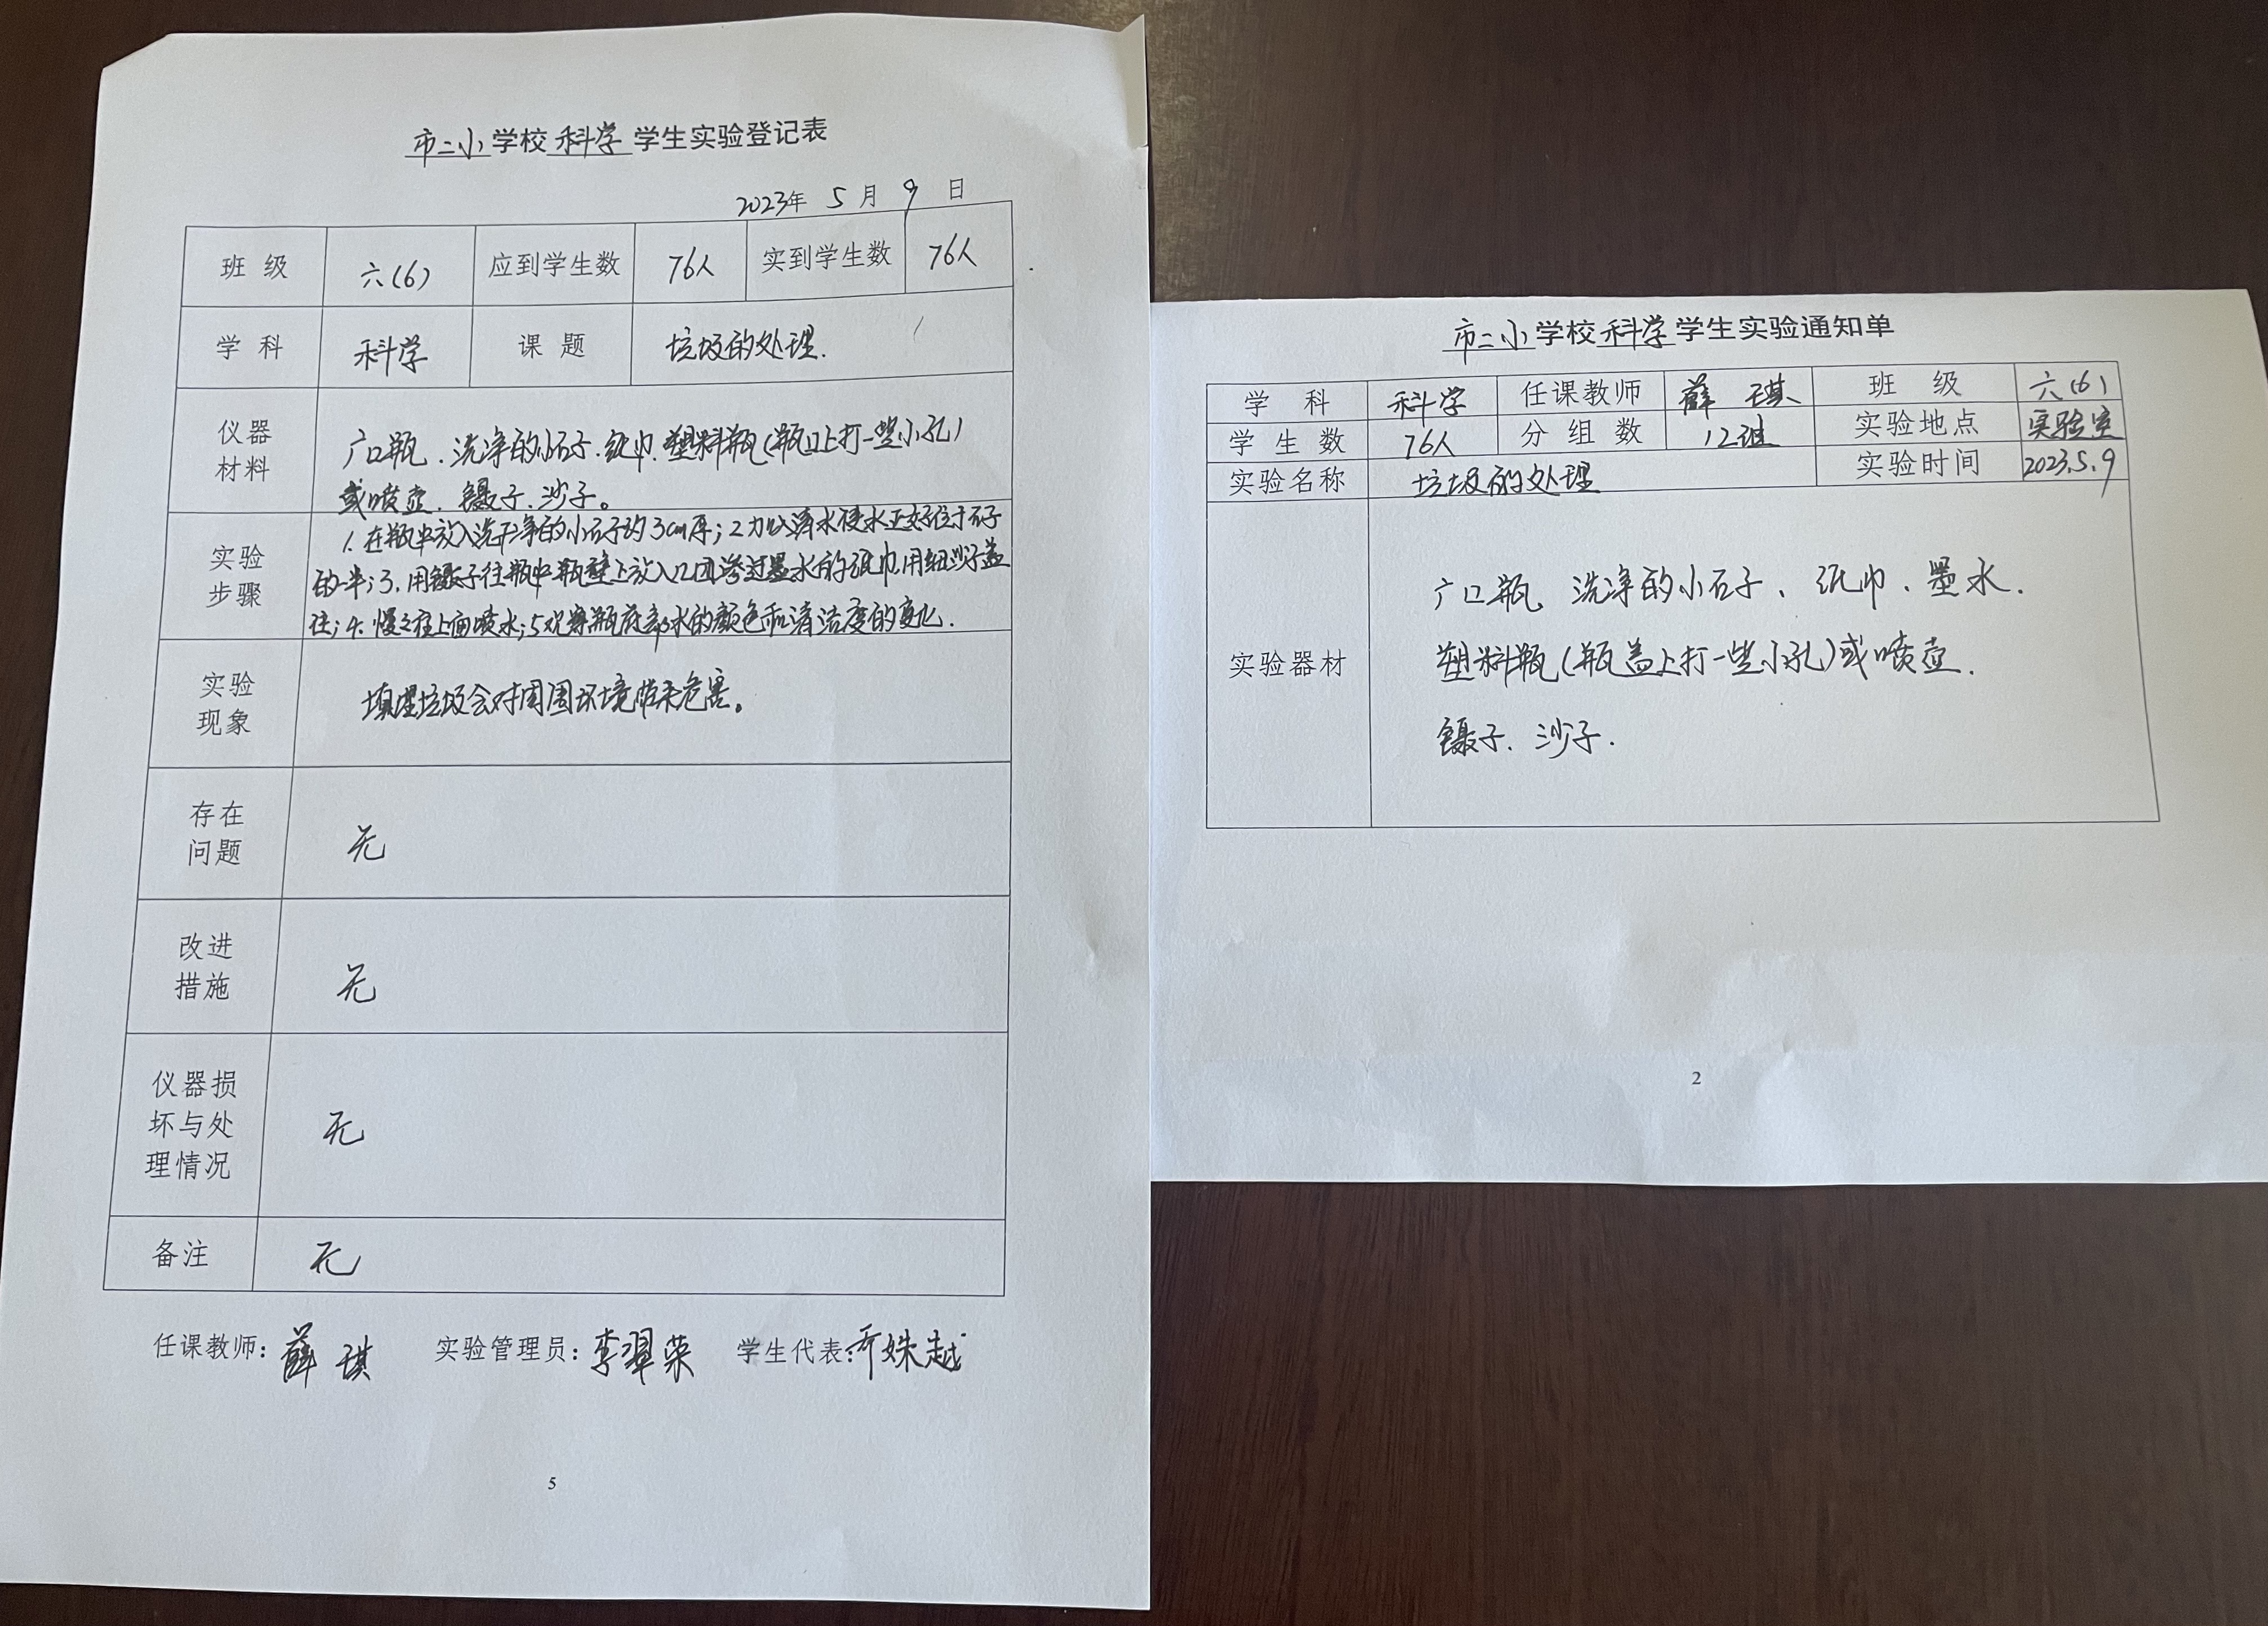 市二小学校科学学生实验登记表
2023年 5 月 9 日
班 级 六(6) 应到学生数 76人 实到学生数 76人
学 科 科学 课 题 垃圾的处理.
仪器
材料
广口瓶.洗净的小石子.纸巾.塑料瓶(瓶口上打一些小孔)
或喷壶.镊子.沙子。
实验
步骤
1.在瓶中放入洗干净的小石子约3cm厚;2加入清水使水正好位于石子
的一半;3.用镊子往瓶中瓶壁上放入几团渗过墨水的纸巾.用细沙子盖
住;4.慢慢往上面喷水;5观察瓶底部水的颜色和清洁度的变化.
实验
现象
填埋垃圾会对周围环境带来危害。
存在
问题
无
改进
措施
无
仪器损
坏与处
理情况
无
备注 无
任课教师:薛琪 实验管理员:李翠荣 学生代表:乔姝越
5
市二小学校科学学生实验通知单
学 科 科学 任课教师 薛琪 班 级 六(6)
学 生 数 76人 分 组 数 12组 实验地点 实验室
实验名称 垃圾的处理 实验时间 2023.5.9
实验器材
广口瓶、洗净的小石子、纸巾、墨水.
塑料瓶(瓶盖上打一些小孔)或喷壶.
镊子.沙子.
2